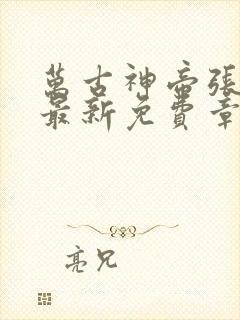 萬古神帝張
最新免費章
亮兄